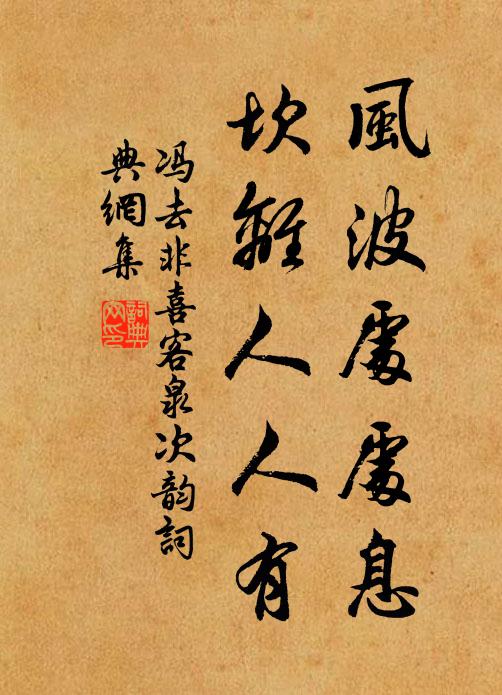 風波處處息
坎離人人有
冯去非喜客泉次韵詞
典網集
詞典
网印